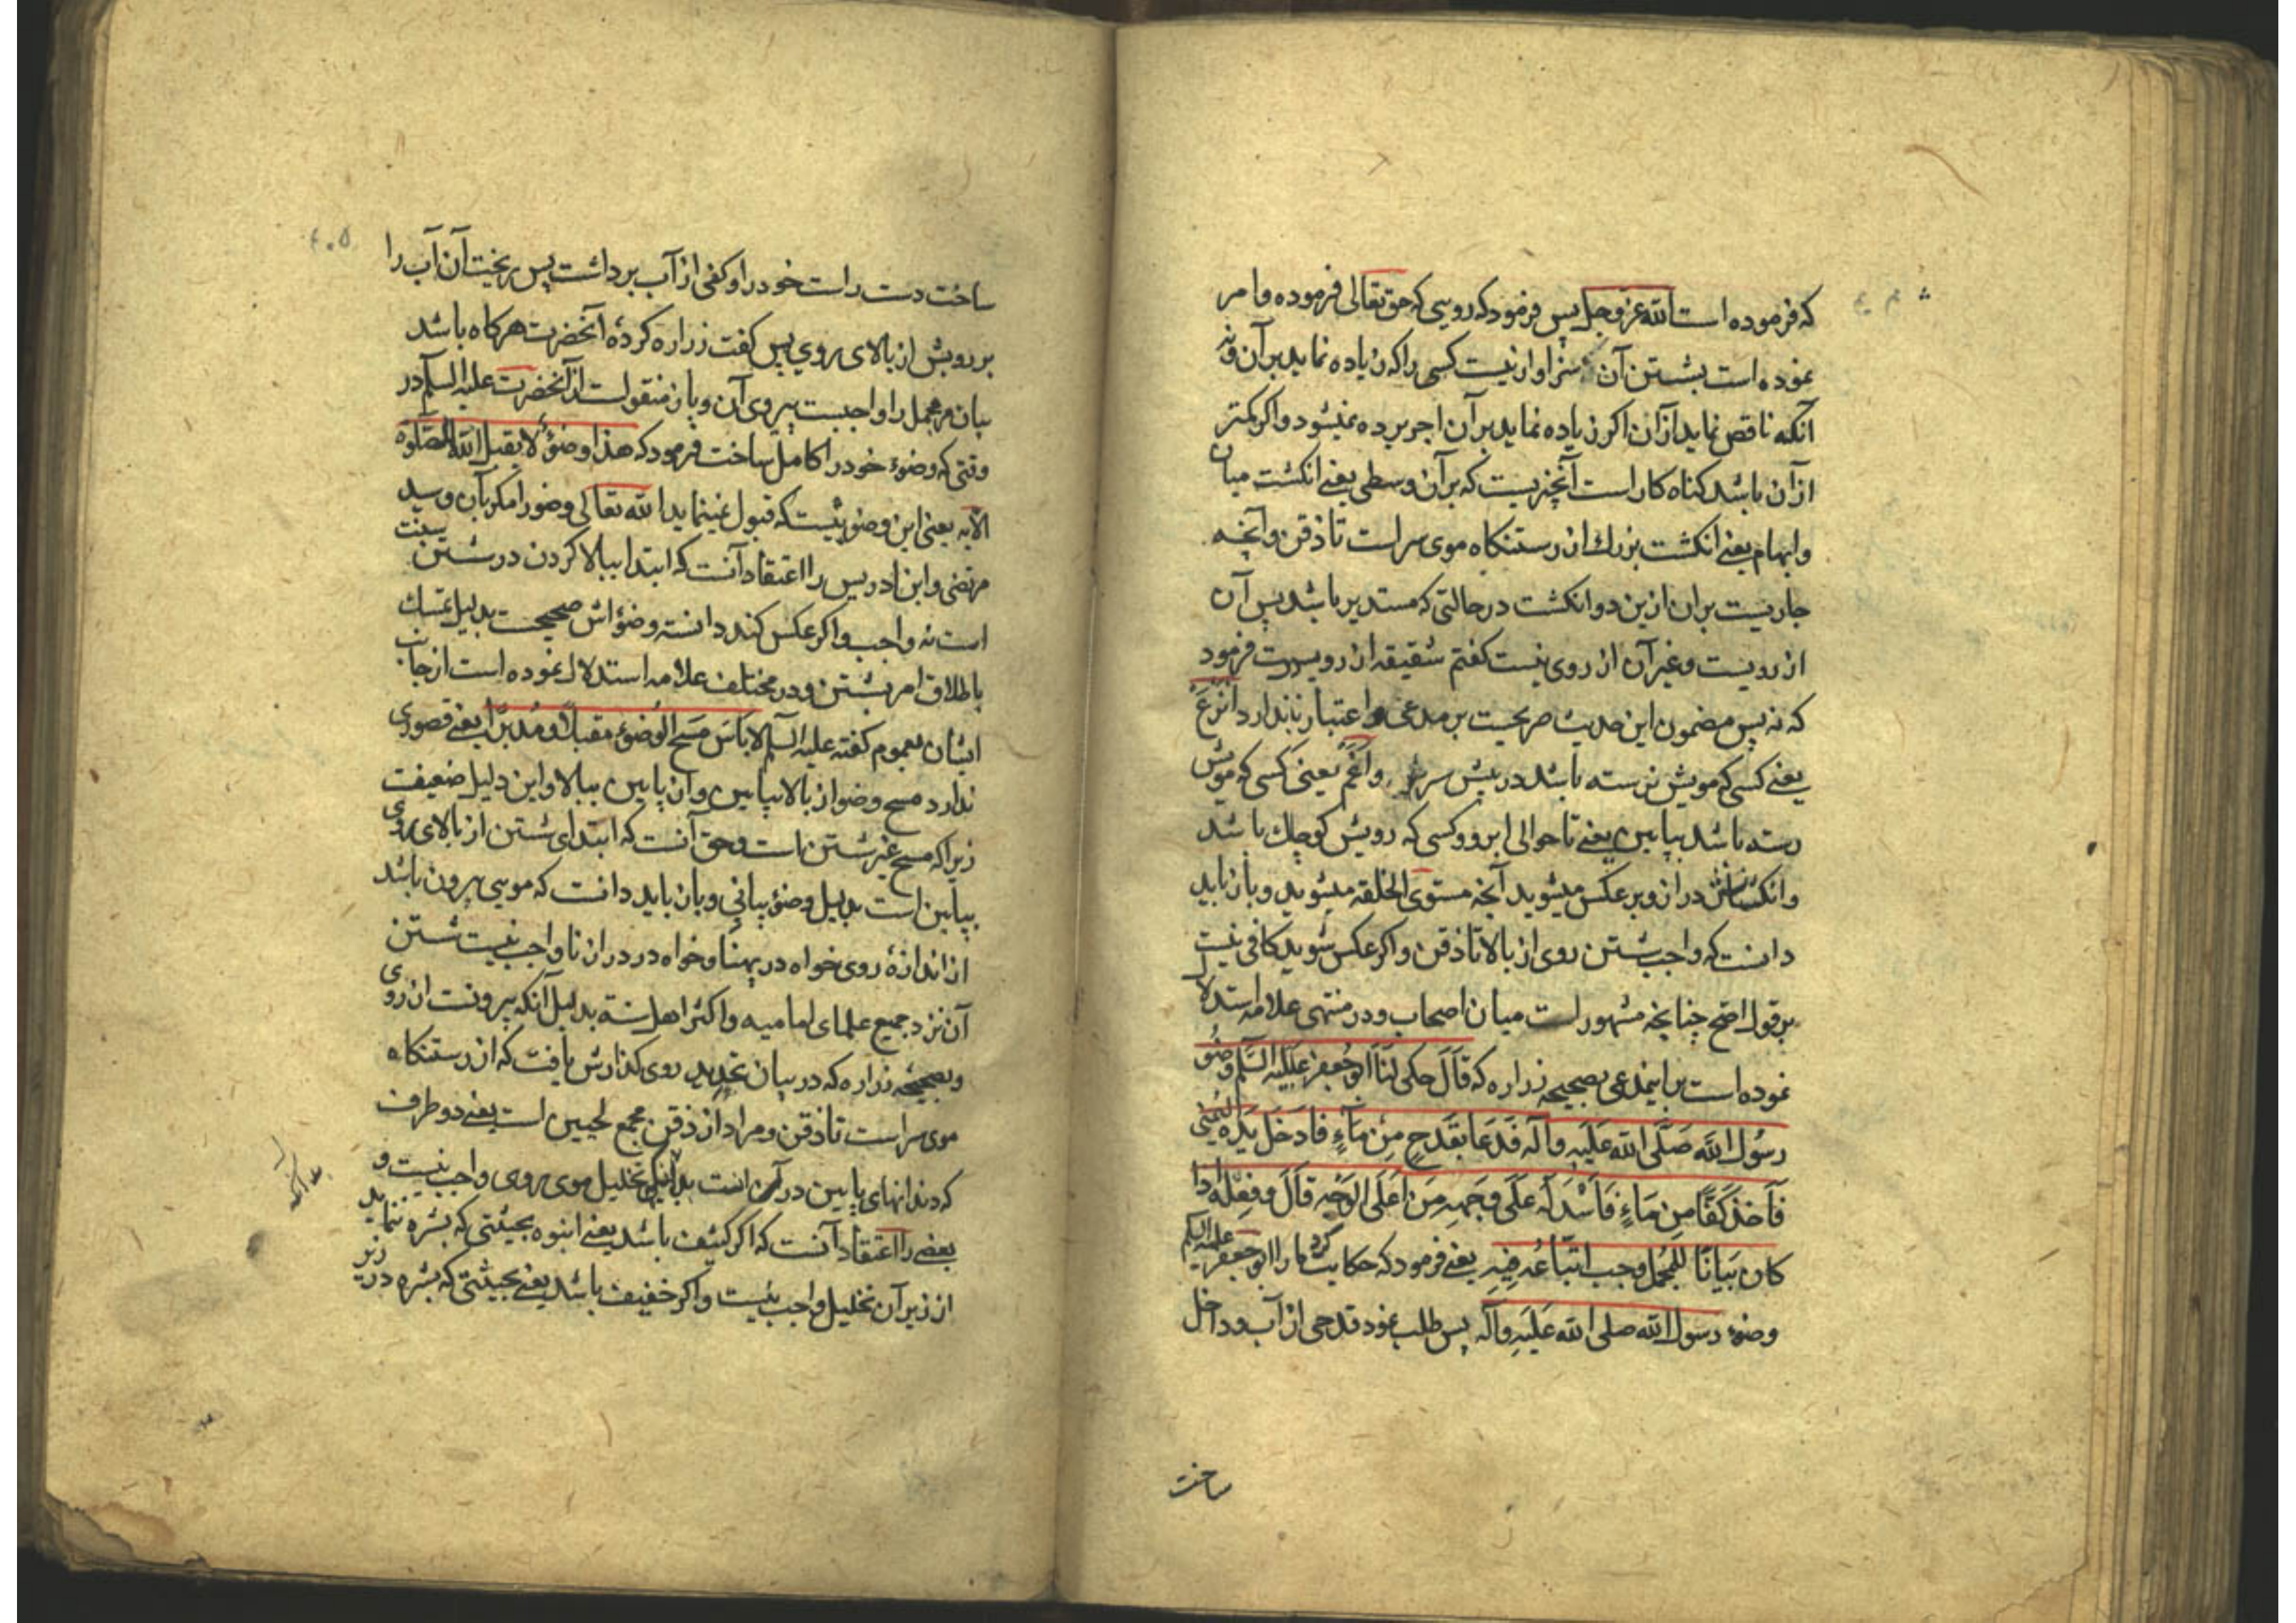 که فرموده است الله عز و جل پس فرمود که رویی که حق تعالی فرموده و امر
نموده است بشستن آن سزاوار نیست کسی را که زیاده نماید بر آن و نه
آنکه ناقص نماید از آن اکر زیاده نماید بر آن اجر برده نمیشود و اکر کمتر
از آن باشد کناه کار است آنچیزیست که بر آن وسطی یعنی انکشت میان
و ابهام یعنی انکشت بزرك از رستنکاه موی سر است تا ذقن و آنچه
جاریست بران ازین دو انکشت در حالتی که مستدیر باشد پس آن
از رویست و غیر آن از روی نیست کفتم شقیقه از رویست فرمود
که نه پس مضمون این حدیث صریحست بر مدعی و اعتبار ندارد انزع
یعنی کسی که مویش نرسته باشد در پیش سر و اغم یعنی کسی که مویش
رسته باشد بپایین یعنی تا حوالی ابرو و کسی که رویش کوچك باشد
و انکشتانش دراز و بر عکس میشوید آنچه مستوی الخلقه میشوید و بان باید
دانست که واجب شستن روی از بالا تا ذقن و اکر عکس شوید کافی نیست
بر قول اصح چنانچه مشهور است میان اصحاب و در منتهی علامه استدلال
نموده است بر اینمدعی بصحیحه زراره که قَالَ حکی لَنَا ابو جَعفر عَلَیْهِ السَّلم وضُوء
رسُول الله صَلَّی الله عَلَیهِ وآله فَدَعَا بقَدَحٍ مِنْ مَآءٍ فَادخَلَ یَدَه الیُمنی
فَاَخَذَ کَفًّا مِن مَاءٍ فَاَسْدَلَه عَلَی وَجَهِهِ مِن اَعلَی الوَجْهِ قَالَ و فِعلُه اذا
کان بَیانًا لِلمُجمَل وجب اتبّاعُه فیهِ یعنی فرمود که حکایت کرد ما را ابو جعفر علیه السلم
وضوء رسول الله صلی الله عَلَیهِ وآله پس طلب نمود قدحی از آب و داخل
ساخت
ساخت دست راست خود را و کفی از آب برداشت پس ریخت آن آب را
بر رویش از بالای روی پس کفت زراره کردهٔ آنحضرت هرکاه باشد
بیان مر مجمل را واجبست پیروی آن و بان منقولست از آنحضرت علیه السلم در
وقتی که وضوء خود را کامل ساخت فرمود که هذا وضوءٌ لا یقبل الله الصّلوه
الّا به یعنی این وضوییست که قبول نمینماید الله تعالی وضو را مکر بآن و سید
مرتضی و ابن ادریس را اعتقاد آنست که ابتدا ببالا کردن در شستن سنت
است نه واجب و اکر عکس کند دانسته وضوٴاش صحیحست بدلیل تمسك
باطلاق امر بشستن و در مختلف علامه استدلال نموده است از جانب
ایشان بعموم کفته علیه السلم لا باَسَ مَسحِ الوُضوء مقبلاً و مُدبرًا یعنی قصوری
ندارد مسح وضو از بالا بپایین و از پایین ببالا و این دلیل ضعیفست
زیرا که مسح غیر شستن است و حق آنست که ابتدای شستن از بالای روی
بپایین است بدلیل وضوٴ بیانی و بان باید دانست که مویی بیرون باشد
از اندازهٔ روی خواه در پهنا و خواه در درازنا واجب نیست شستن
آن نزد جمیع علمای امامیه و اکثر اهل سنة بدلیل آنکه بیرونست از روی
و بصحیحه زراره که در بیان تحدید روی کذارش یافت که از رستنکاه
موی سر است تا ذقن و مراد از ذقن مجمع لحیین است یعنی دو طرف
که دندانهای پایین در آن است بدانکه تخلیل موی روی واجب نیست و
بعضی را اعتقاد آنست که اکر کثیف باشد یعنی انبوه بحیثتی که بشره ننماید
از زیر آن تخلیل واجب نیست و اکر خفیف باشد یعنی بحیثتی که بشره در زیر